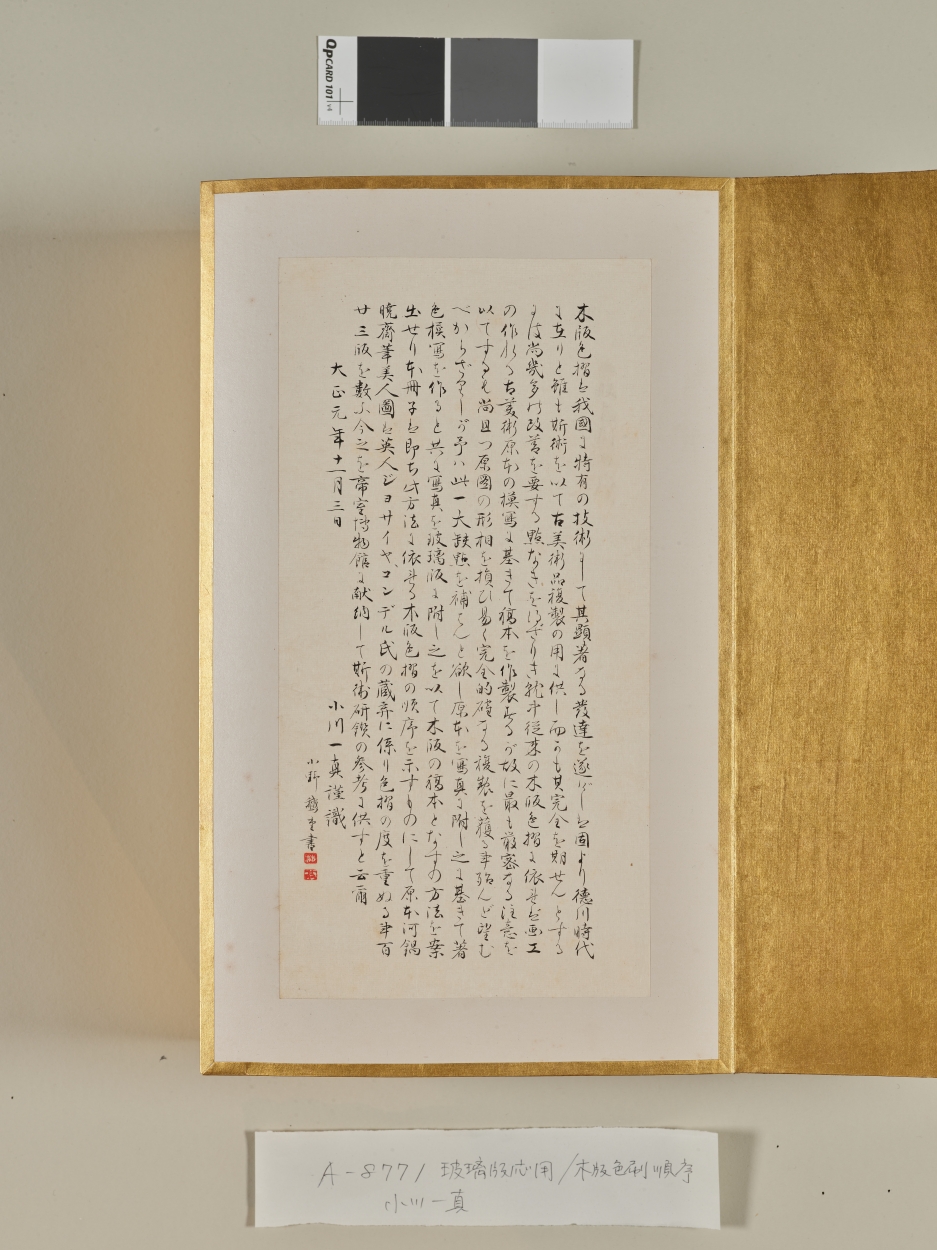 QPCARD 101 v4
木版色摺は我國に特有の技術にして其顕著なる發達を遂げしは固より徳川時代
に在りと雖も斯術を以て古美術品複製の用に供し而かも其完全を期せんとする
には尚幾多の改善を要する點なきを得ざりき 従来の木版色摺に依れば画工
の作れる古美術原本の模写に基きて稿本を作製するが故に最も厳密なる注意を
以てするも尚且つ原図の形相を損ひ易く完全的確なる複製を獲る事殆んど望む
べからざりしが予ハ此一大缺點を補はんと欲し原本を寫真に附し之に基きて著
色模寫を作ると共に寫真を玻璃版に附し之を以て木版の稿本となすの方法を案
出せり本冊子は即ち此方法に依れる木版色摺の順序を示すものにして原本河鍋
暁斎筆美人圖は英人ジョサイヤ、コンデル氏の蔵弆に係り色摺の度を重ぬる事百
廿三版を數ふ今之を帝室博物館に献納して斯術研鑽の参考に供すと云爾
大正元年十一月三日
小川一真謹識
小野 書
A-8771 玻璃版応用/木版色刷順序
小川一真